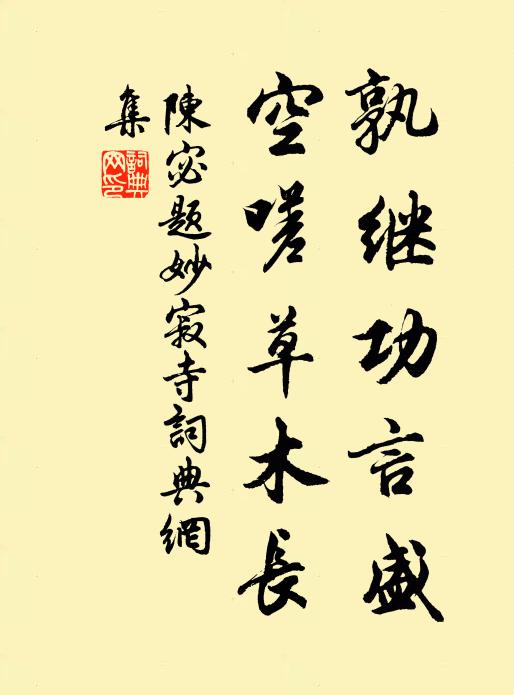 孰继功言盛
空嗟草木長
陳宓題妙寂寺詞典網
集
詞典網印